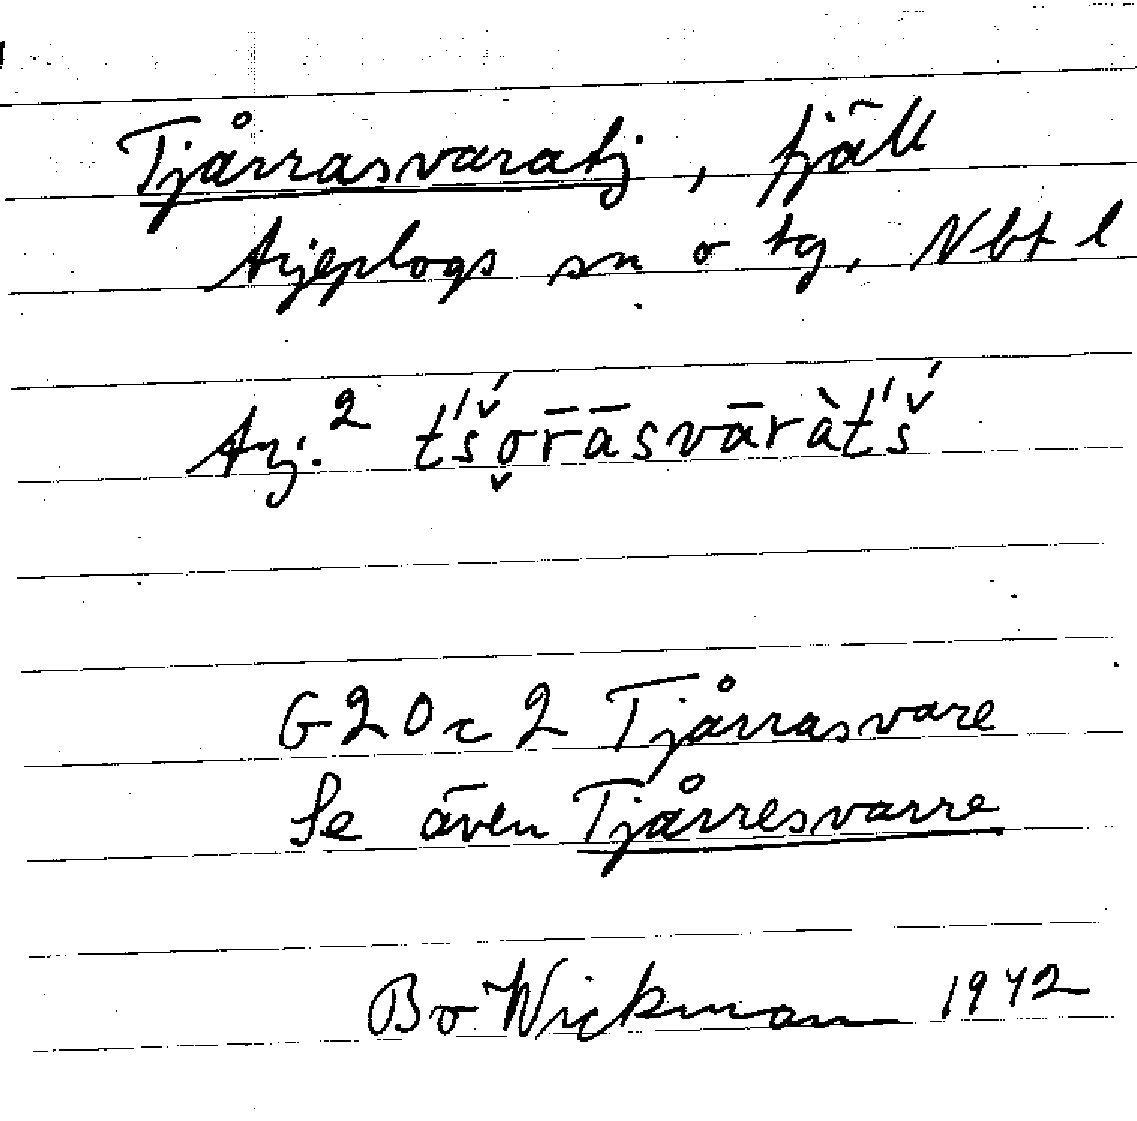 Tjårrasvaratj, fjäll
Arjeplogs sn o tg, Nbt l
Arj.² t́š́o̬r̄āsvāràt́š́
G20c2 Tjårrasvare
Se även Tjårresvarre
Bo Wickman 1942